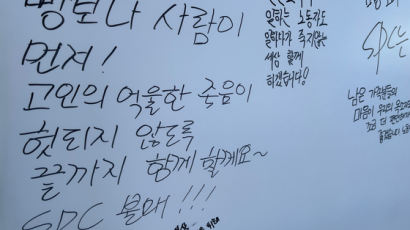 빵보다 사람이
먼저!
고인의 억울한 죽음이
헛되지 않도록
끝까지 함께 할게요~
SPC 불매!!!
일하는 노동자도
일하다가 죽지않는
세상 함께
하겠습니다!
SPC는
남은 가족분들의
마음이